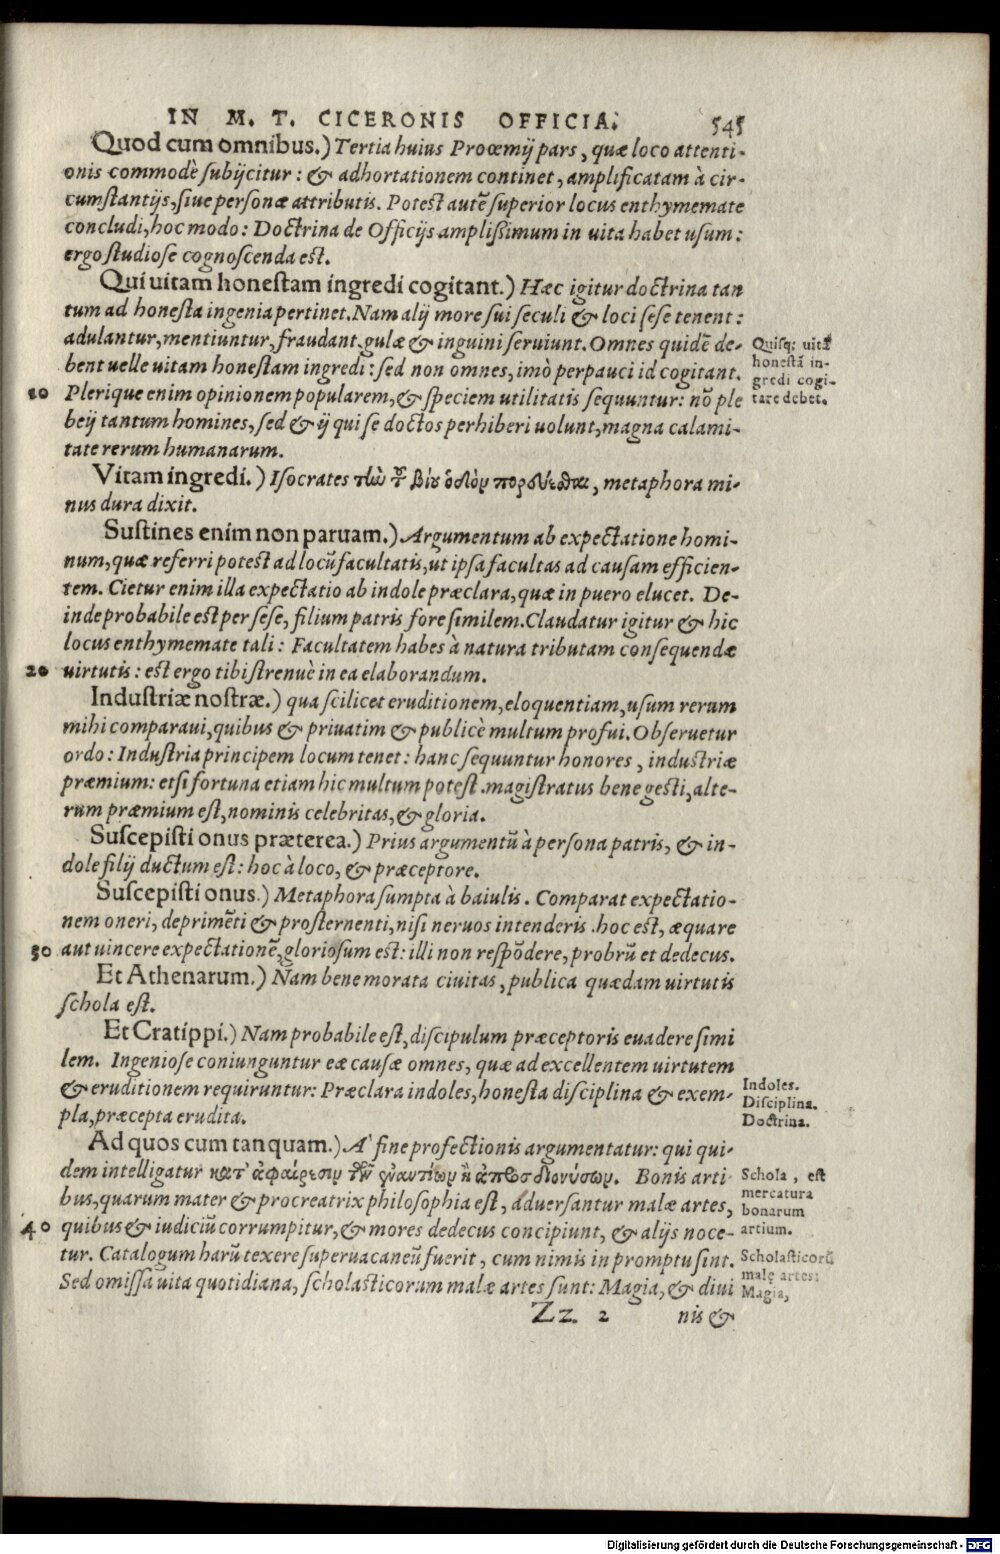 IN M. T. CICERONIS OFFICIA. 545
Quod cum omnibus.) Tertia huius Prooemij pars, quæ loco attenti-
onis commodè subijcitur: & adhortationem continet, amplificatam à cir-
cumstantijs, siue personæ attributis. Potest autē superior locus enthymemate
concludi, hoc modo: Doctrina de Officijs amplißimum in uita habet usum:
ergo studiose cognoscenda est.
Qui uitam honestam ingredi cogitant.) Hæc igitur doctrina tan
tum ad honesta ingenia pertinet. Nam alij more sui seculi & loci sese tenent:
adulantur, mentiuntur, fraudant, gulæ & inguini seruiunt. Omnes quidē de-
bent uelle uitam honestam ingredi: sed non omnes, imò perpauci id cogitant.
Quisq; uitā
honestā in-
gredi cogi-
tare debet.
10 Plerique enim opinionem popularem, & speciem utilitatis sequuntur: nō ple
beij tantum homines, sed & ij qui se doctos perhiberi uolunt, magna calami-
tate rerum humanarum.
Vitam ingredi.) Isocrates τὴν τοῦ βίου ὁδὸν πορεύεσθαι, metaphora mi-
nus dura dixit.
Sustines enim non paruam.) Argumentum ab expectatione homi-
num, quæ referri potest ad locū facultatis, ut ipsa facultas ad causam efficien-
tem. Cietur enim illa expectatio ab indole præclara, quæ in puero elucet. De-
inde probabile est per sese, filium patris fore similem. Claudatur igitur & hic
locus enthymemate tali: Facultatem habes à natura tributam consequendæ
20 uirtutis: est ergo tibi strenuè in ea elaborandum.
Industriæ nostræ.) qua scilicet eruditionem, eloquentiam, usum rerum
mihi comparaui, quibus & priuatim & publicè multum profui. Obseruetur
ordo: Industria principem locum tenet: hanc sequuntur honores, industriæ
præmium: etsi fortuna etiam hic multum potest. magistratus bene gesti, alte-
rum præmium est, nominis celebritas, & gloria.
Suscepisti onus præterea.) Prius argumentū à persona patris, & in-
dole filij ductum est: hoc à loco, & præceptore.
Suscepisti onus.) Metaphora sumpta à baiulis. Comparat expectatio-
nem oneri, deprimēti & prosternenti, nisi neruos intenderis. hoc est, æquare
30 aut uincere expectationē, gloriosum est: illi non respōdere, probrū et dedecus.
Et Athenarum.) Nam bene morata ciuitas, publica quædam uirtutis
schola est.
Et Cratippi.) Nam probabile est, discipulum præceptoris euadere simi
lem. Ingeniose coniunguntur eæ causæ omnes, quæ ad excellentem uirtutem
& eruditionem requiruntur: Præclara indoles, honesta disciplina & exem-
pla, præcepta erudita.
Indoles.
Disciplina.
Doctrina.
Ad quos cum tanquam.) A' fine profectionis argumentatur: qui qui-
dem intelligatur κατ' ἀφαίρεσιν τῶν ἐναντίων Bonis arti-
bus, quarum mater & procreatrix philosophia est, aduersantur malæ artes,
40 quibus & iudiciū corrumpitur, & mores dedecus concipiunt, & alijs noce-
Schola, est
mercatura
bonarum
artium.
tur. Catalogum harū texere superuacaneū fuerit, cum nimis in promptu sint.
Sed omissa uita quotidiana, scholasticorum malæ artes sunt: Magia, & diui
Scholasticorū
malę artes:
Magia,
Zz 2 nis &
Digitalisierung gefördert durch die Deutsche Forschungsgemeinschaft - DFG